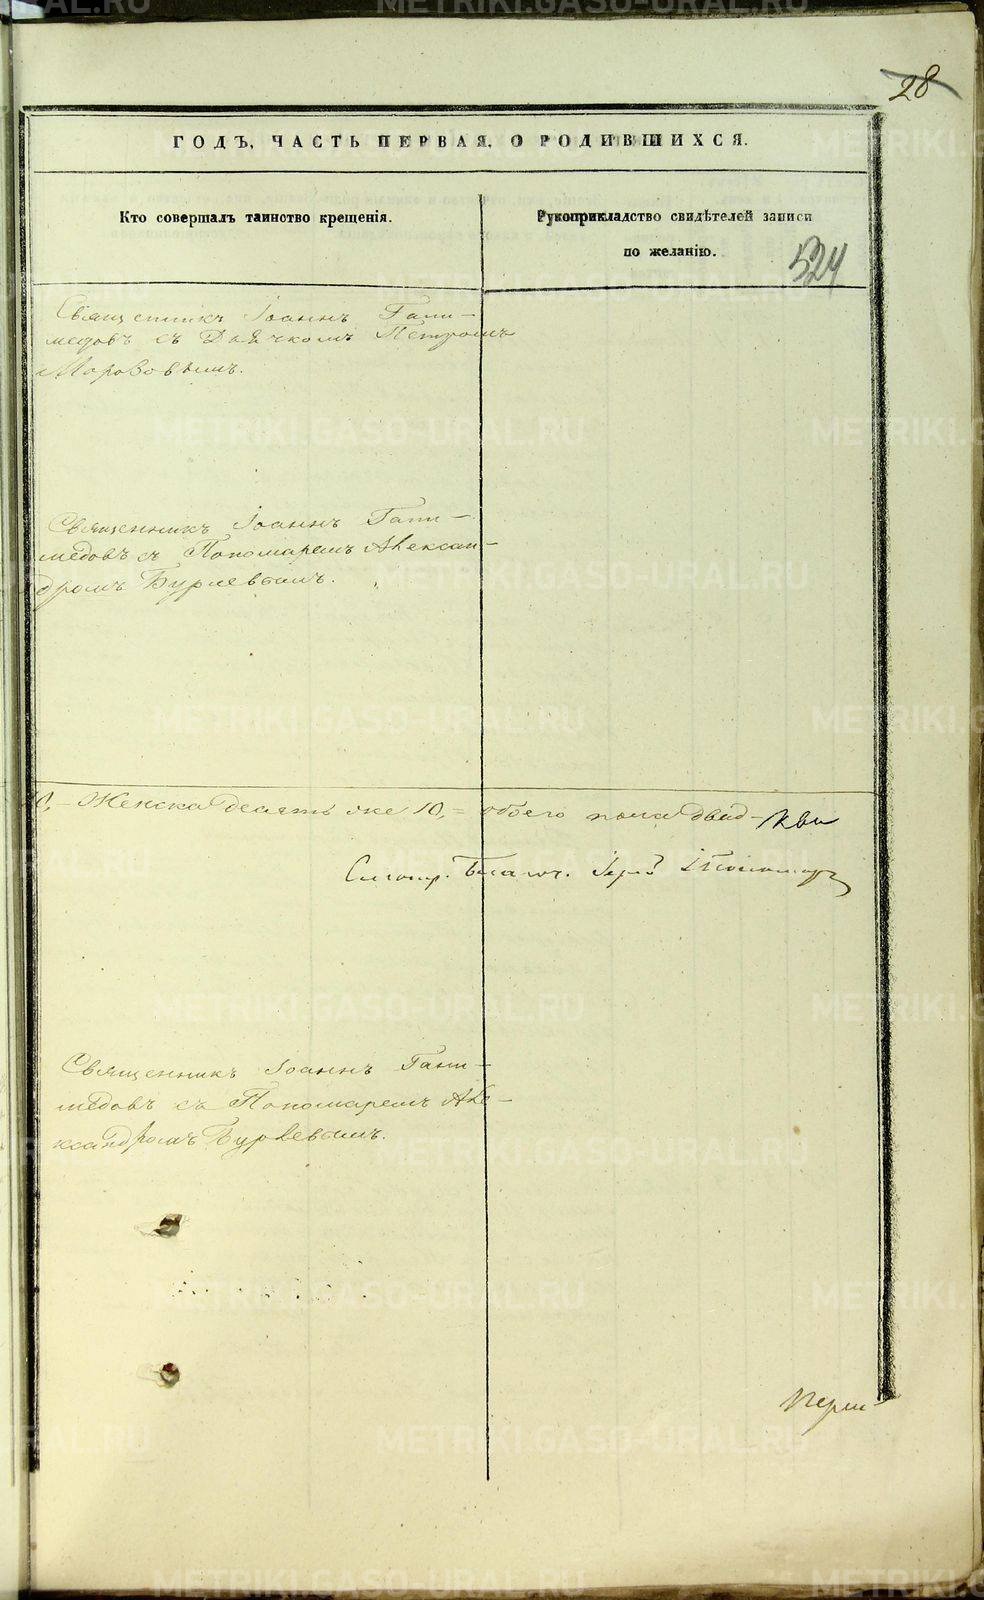 28
ГОДЪ, ЧАСТЬ ПЕРВАЯ, О РОДИВШИХСЯ.
Кто совершалъ таинство крещенія.
Рукоприкладство свидѣтелей записи
по желанію.
524
Священникъ Іоаннъ Гани-
медовъ съ Дьячкомъ Петромъ
Морозовымъ.
Священникъ Іоаннъ Гани-
медовъ съ Пономаремъ Алексан-
дромъ Бурлевымъ.
Женска десять же 10, = обоего пола двад-
Смотр. Благоч. Іерей
Священникъ Іоаннъ Гани-
медовъ съ Пономаремъ Але-
ксандромъ Бурлевымъ.
Перм-
METRIKI.GASO-URAL.RU